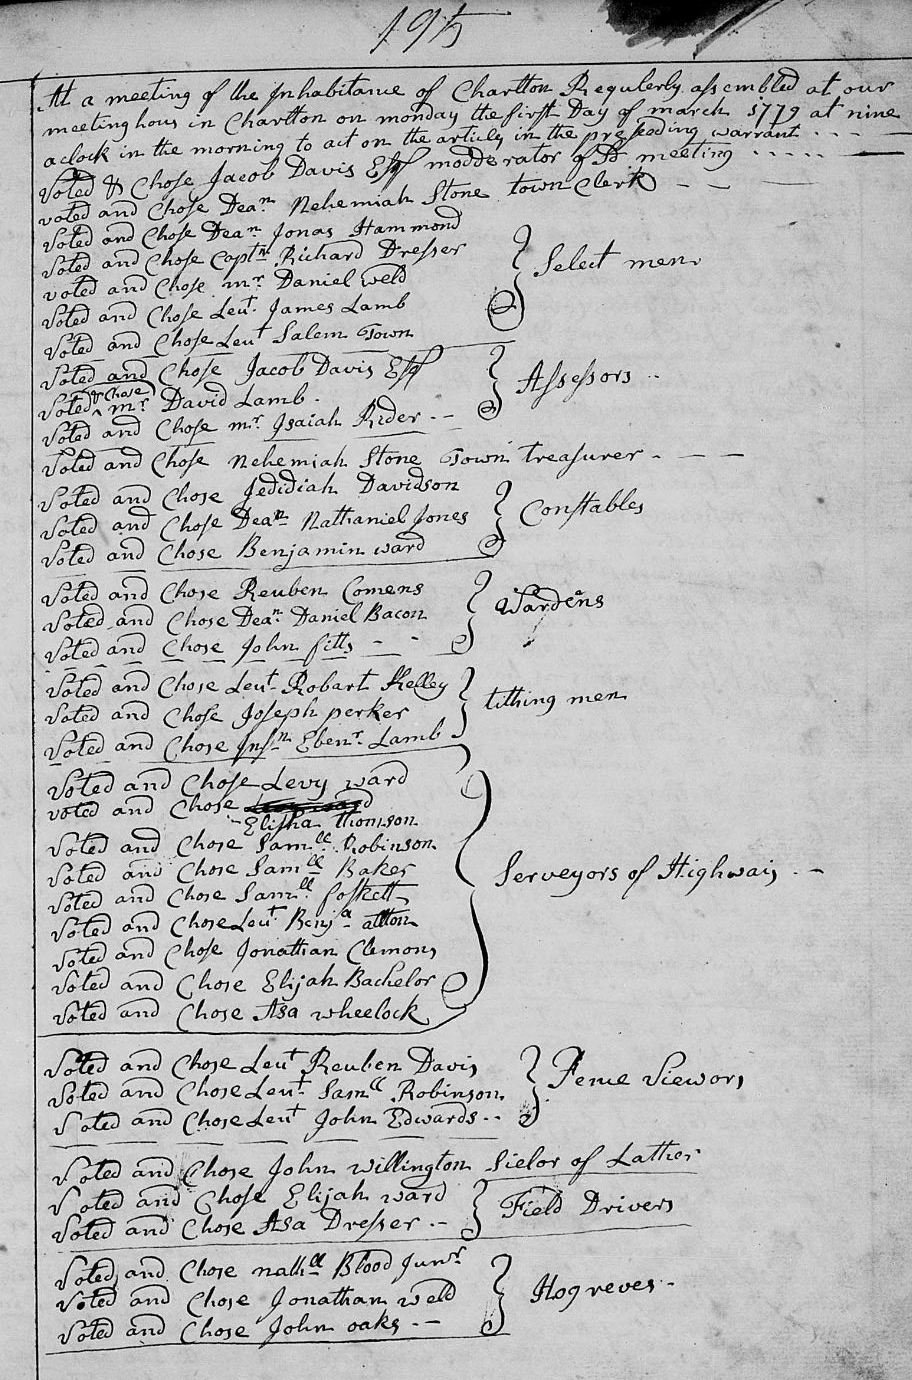 195
At a meeting of the Inhabitance of Charlton Regulerly assembled at our
meeting hous in Charlton on monday the first Day of march 1779 at nine
aclock in the morning to act on the articls in the preseading warrant
Voted & Chose Jacob Davis Esqr modderator of Sd meeting
voted and Chose Dean Nehemiah Stone town Clerk
Voted and Chose Dean Jonas Hammond
Voted and Chose Captn Richard Dresser
voted and Chose mr Daniel weld
Select men
Voted and Chose Leut James Lamb
Voted and Chose Leut Salem Town
Voted and Chose Jacob Davis Esqr
Voted & Chose mr David Lamb
Assessors
Voted and Chose mr Isaiah Rider
Voted and Chose Nehemiah Stone Town treasurer
Voted and Chose Jedidiah Davidson
Voted and Chose Dean Nathaniel Jones
Constables
Voted and Chose Benjamin ward
Voted and Chose Reuben Comens
Voted and Chose Dean Daniel Bacon
Wardens
Voted and Chose John fitts
Voted and Chose Leut Robart Kelley
Voted and Chose Joseph perker
tithing men
Voted and Chose Insn Ebenr Lamb
Voted and Chose Levy ward
voted and Chose
Elisha thomson
Voted and Chose Samll Robinson
Voted and Chose Samll Baker
Serveyors of Highwais
Voted and Chose Samll foskett
Voted and Chose Leut Benja allton
Voted and Chose Jonathan Clemons
Voted and Chose Elijah Bachelor
Voted and Chose Asa wheelock
Voted and Chose Leut Reuben Davis
Voted and Chose Leut Samll Robinson
Fence Viewors
Voted and Chose Leut John Edwards
Voted and Chose John willington Sielor of Lather
Voted and Chose Elijah ward
Field Drivers
Voted and Chose Asa Dresser
Voted and Chose nathll Blood Junr
Voted and Chose Jonathan weld
Hogreves
Voted and Chose John oaks